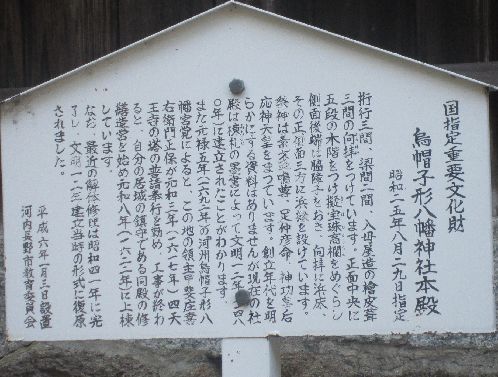 国指定重要文化財
烏帽子形八幡神社本殿
昭和二五年八月二九日指定
桁行三間、梁間二間、入母屋造の檜皮葺
三間の向拝をつけています。正面中央に
五段の木階をつけ擬宝珠高欄をめぐらし
側面後端に脇障子をおき、向拝に浜床
その正側面三方に浜縁を設けています。
祭神は素盞嗚尊、足仲彦命、神功皇后
応神天皇をまつっています。創立年代を明
らかにする資料はありませんが現在の社
殿は棟札の墨書によって文明一二年(一四八
〇年)に建立されたことがわかります。
また元禄五年(一六九二年)の河州烏帽子形八
幡宮覚によると、この地の領主甲斐庄喜
右衛門正保が元和三年(一六一七年)、四天
王寺の塔の普請奉行を勤め、工事が終わ
ると、自分の居城の鎮守である同殿の修
繕造営を始め元和八年(一六二二年)に上棟
しています。
なお、最近の解体修理は昭和四一年に完
了し、文明一二年建立当時の形式に復原
されました。
平成六年一月三日設置
河内長野市教育委員会